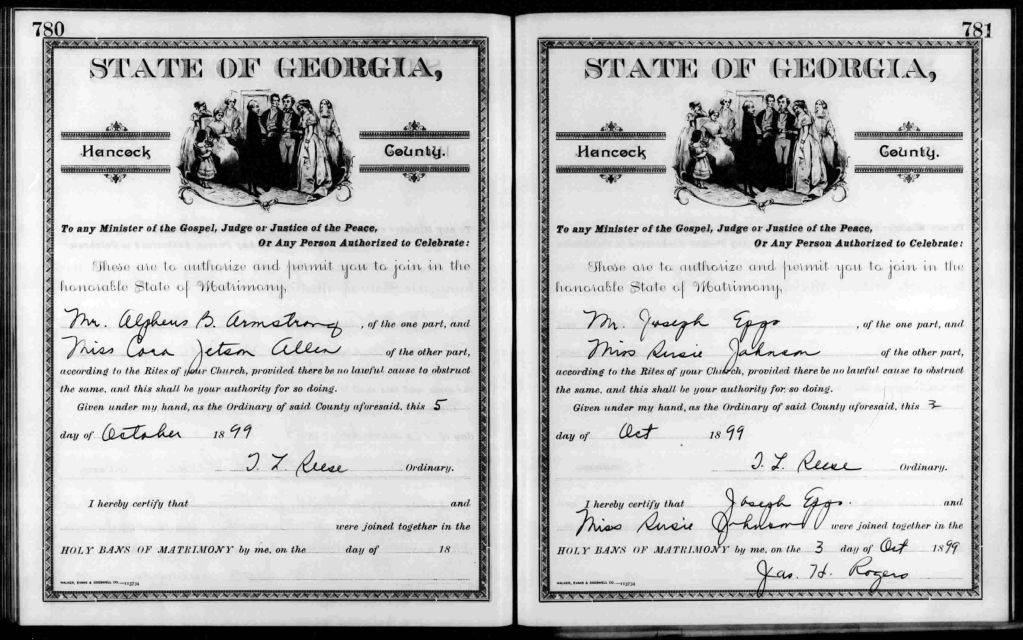 780
STATE OF GEORGIA,
Hancock County.
To any Minister of the Gospel, Judge or Justice of the Peace,
Or Any Person Authorized to Celebrate:
These are to authorize and permit you to join in the
honorable State of Matrimony,
Mr. Alpheus B. Armstrong, of the one part, and
Miss Cora Jetson Allen of the other part,
according to the Rites of your Church, provided there be no lawful cause to obstruct
the same, and this shall be your authority for so doing.
Given under my hand, as the Ordinary of said County aforesaid, this 5
day of October 1899
T. L. Reese Ordinary.
I hereby certify that and
were joined together in the
HOLY BANS OF MATRIMONY by me, on the day of 18
WALKER, EVANS & COGSWELL CO.—113734
781
STATE OF GEORGIA,
Hancock County.
To any Minister of the Gospel, Judge or Justice of the Peace,
Or Any Person Authorized to Celebrate:
These are to authorize and permit you to join in the
honorable State of Matrimony,
Mr. Joseph Epps, of the one part, and
Miss Susie Johnson of the other part,
according to the Rites of your Church, provided there be no lawful cause to obstruct
the same, and this shall be your authority for so doing.
Given under my hand, as the Ordinary of said County aforesaid, this 3
day of Oct 1899
T. L. Reese Ordinary.
I hereby certify that Joseph Epps. and
Miss Susie Johnson were joined together in the
HOLY BANS OF MATRIMONY by me, on the 3 day of Oct 1899
Jas. H. Rogers
WALKER, EVANS & COGSWELL CO.—113734